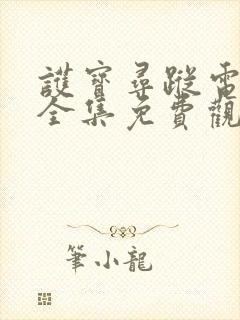 護寶尋蹤電
全集免費觀
筆小龍